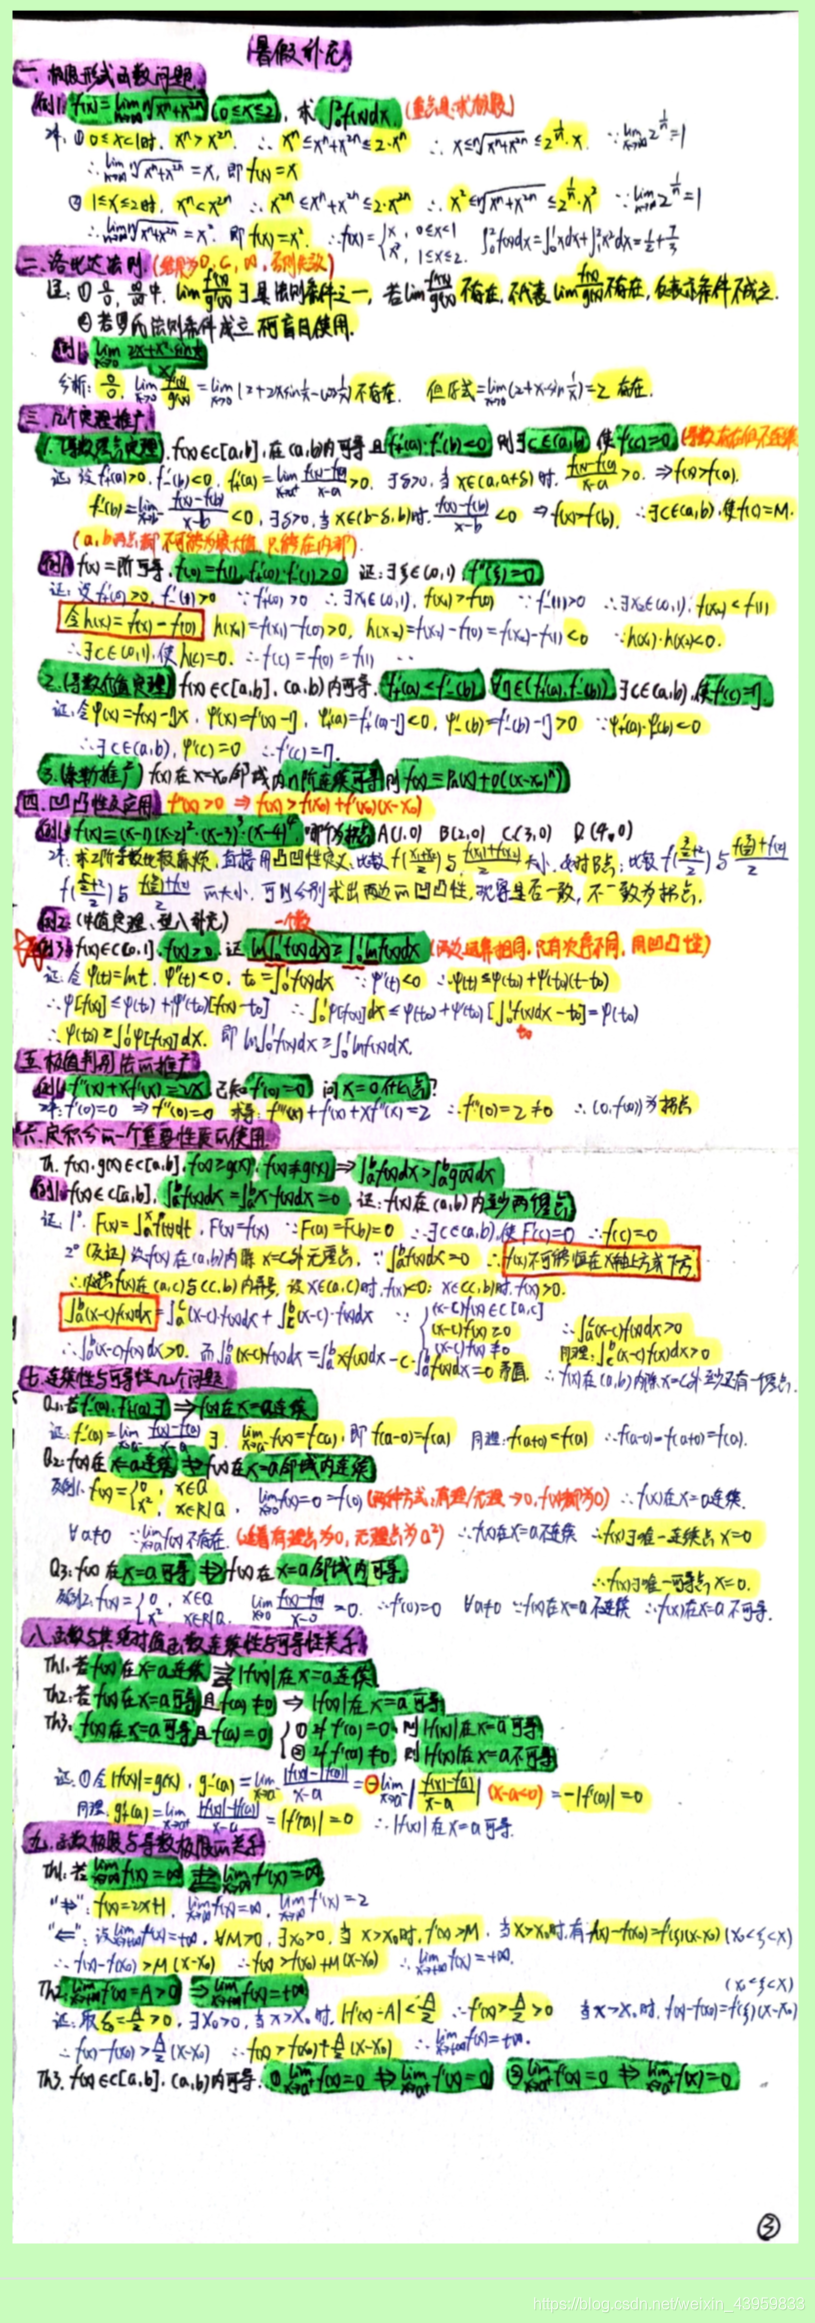 暑假补充
一. 极限形式函数问题
例1. f(x)=lim ⁿ√(xⁿ+x²ⁿ) (0≤x≤2), 求 ∫₀²f(x)dx. (重点是:求极限)
① 0≤x<1时, xⁿ>x²ⁿ. ∴ xⁿ≤xⁿ+x²ⁿ≤2·xⁿ ∴ x≤ⁿ√(xⁿ+x²ⁿ)≤2^(1/n)·x. ∵ lim 2^(1/n)=1
∴ lim ⁿ√(xⁿ+x²ⁿ)=x, 即 f(x)=x
② 1≤x≤2时, xⁿ<x²ⁿ ∴ x²ⁿ≤xⁿ+x²ⁿ≤2·x²ⁿ ∴ x²≤ⁿ√(xⁿ+x²ⁿ)≤2^(1/n)·x² ∵ lim 2^(1/n)=1
∴ lim ⁿ√(xⁿ+x²ⁿ)=x². 即 f(x)=x². ∴ f(x)={x, 0≤x<1; x², 1≤x≤2. ∫₀²f(x)dx=∫₀¹xdx+∫₁²x²dx=1/2+7/3
二. 洛必达法则. (结果为0, C, ∞, 否则失效)
lim f'(x)/g'(x) ∃ 是法则条件之一, 若 lim f'(x)/g'(x) 不存在, 不代表 lim f(x)/g(x) 不存在, 仅表示条件不成立.
例1.
分析: 0/0, lim f'(x)/g'(x) 不存在. 但原式=lim(2+x·sin 1/x)=2 存在.
三. 几个定理推广
1. (导数零点定理). f(x)∈C[a,b], 在(a,b)内可导 且 f'₊(a)·f'₋(b)<0 则∃c∈(a,b), 使 f'(c)=0.
证: 设 f'₊(a)>0, f'₋(b)<0, f'₊(a)=lim (f(x)-f(a))/(x-a)>0. ∃δ>0, 当 x∈(a,a+δ) 时, (f(x)-f(a))/(x-a)>0. ⇒f(x)>f(a).
f'₋(b)=lim (f(x)-f(b))/(x-b)<0, ∃δ>0, 当 x∈(b-δ,b)时, (f(x)-f(b))/(x-b)<0 ⇒ f(x)>f(b). ∴∃c∈(a,b), 使 f(c)=M.
(a, b两点都不可能为最大值, 只能在内部).
例1. f(x)二阶可导, f(0)=f(1), f'₊(0)·f'₋(1)>0 证:∃ξ∈(0,1), f''(ξ)=0
证: 设 f'₊(0)>0, f'₋(1)>0 ∵ f'₊(0)>0 ∴∃x₁∈(0,1), f(x₁)>f(0) ∵ f'₋(1)>0 ∴∃x₂∈(0,1), f(x₂)<f(1)
令 h(x)=f(x)-f(0) h(x₁)=f(x₁)-f(0)>0, h(x₂)=f(x₂)-f(0)=f(x₂)-f(1)<0 ∵h(x₁)·h(x₂)<0.
∴∃c∈(0,1), 使 h(c)=0. ∴ f(c)=f(0)=f(1) ...
2. (导数介值定理) f(x)∈C[a,b], (a,b)内可导, f'₊(a)<f'₋(b), ∀η∈(f'₊(a),f'₋(b)) ∃c∈(a,b), 使f'(c)=η.
证: 令 φ(x)=f(x)-ηx, φ'(x)=f'(x)-η, φ'₊(a)=f'₊(a)-η<0, φ'₋(b)=f'₋(b)-η>0 ∵φ'₊(a)·φ'₋(b)<0
∴∃c∈(a,b), φ'(c)=0 ∴f'(c)=η.
3. (泰勒推广) f(x) 在 x=x₀ 邻域内n阶连续可导 则 f(x)=Pₙ(x)+o((x-x₀)ⁿ)
四. 凹凸性及应用 f''(x)>0 ⇒ f(x)>f(x₀)+f'(x₀)(x-x₀)
例1. f(x)=(x-1)(x-2)²·(x-3)³·(x-4)⁴ 哪个为拐点 A(1,0) B(2,0) C(3,0) D(4,0)
求二阶导数比较麻烦, 直接用凹凸性定义: 比较 f((x₁+x₂)/2) 与 (f(x₁)+f(x₂))/2 大小.
的大小. 可以分别求出两边的凹凸性, 观察是否一致, 不一致为拐点.
例2: (中值定理、型八补充) 一个数
例3. f(x)∈C[0,1], f(x)>0. 证 ln∫₀¹f(x)dx≥∫₀¹lnf(x)dx (两边运算相同, 只有次序不同, 用凹凸性)
证: 令 φ(t)=lnt, φ''(t)<0, t₀=∫₀¹f(x)dx ∵φ''(t)<0 ∴φ(t)≤φ(t₀)+φ'(t₀)(t-t₀)
∴φ[f(x)]≤φ(t₀)+φ'(t₀)[f(x)-t₀] ∴∫₀¹φ[f(x)]dx≤φ(t₀)+φ'(t₀)[∫₀¹f(x)dx-t₀]=φ(t₀)
t₀
∴φ(t₀)≥∫₀¹φ[f(x)]dx. 即 ln∫₀¹f(x)dx≥∫₀¹lnf(x)dx.
五. 极值判别法的推广
例1. f''(x)+xf'(x)=2x 已知 f'(0)=0 问 x=0什么点?
f'(0)=0 ⇒f''(0)=0 求导: f'''(x)+f'(x)+xf''(x)=2 ∴f'''(0)=2≠0 ∴(0,f(0))为拐点
六. 定积分的一个重要性质的使用
Th. f(x), g(x)∈C[a,b], f(x)≥g(x), f(x)≢g(x) ⇒∫ₐᵇf(x)dx>∫ₐᵇg(x)dx
例1. f(x)∈C[a,b], ∫ₐᵇf(x)dx=∫ₐᵇx·f(x)dx=0 证: f(x)在(a,b)内至少两个零点
证: 1° F(x)=∫ₐˣf(t)dt, F'(x)=f(x) ∵F(a)=F(b)=0 ∴∃c∈(a,b), 使F'(c)=0 ∴f(c)=0
2° (反证) 设f(x)在(a,b)内除x=c外无零点, ∵∫ₐᵇf(x)dx=0 ∴f(x)不可能恒在x轴上方或下方.
f(x)在(a,c)与(c,b)内异号, 设x∈(a,c)时, f(x)<0; x∈(c,b)时, f(x)>0.
∫ₐᵇ(x-c)f(x)dx=∫ₐᶜ(x-c)·f(x)dx+∫꜀ᵇ(x-c)·f(x)dx ∵ {(x-c)f(x)∈C[a,c]; (x-c)f(x)≥0; (x-c)f(x)≢0 ∴∫ₐᶜ(x-c)f(x)dx>0 同理: ∫꜀ᵇ(x-c)f(x)dx>0
∴∫ₐᵇ(x-c)f(x)dx>0. 而∫ₐᵇ(x-c)f(x)dx=∫ₐᵇxf(x)dx-c·∫ₐᵇf(x)dx=0 矛盾. ∴f(x)在(a,b)内除x=c外至少还有一个零点.
七. 连续性与可导性几个问题
Q1: 若f'₋(a), f'₊(a)∃ ⇒f(x)在x=a连续
证: f'₋(a)=lim (f(x)-f(a))/(x-a) ∃. lim f(x)=f(a), 即 f(a-0)=f(a) 同理: f(a+0)=f(a) ∴f(a-0)=f(a+0)=f(a).
Q2: f(x)在x=a连续 ⇏ f(x)在x=a邻域内连续
反例1. f(x)={0, x∈Q; x², x∈R\Q, lim f(x)=0=f(0) (两种方式:有理/无理→0, f(x)都为0) ∴f(x)在x=0连续.
∀a≠0 ∵lim f(x)不存在. (逼着有理点为0, 无理点为a²) ∴f(x)在x=a不连续 ∴f(x)∃唯一连续点 x=0
Q3: f(x)在x=a可导 ⇏ f(x)在x=a邻域内可导 ∴f(x)∃唯一可导点x=0.
反例2. f(x)={0, x∈Q; x², x∈R\Q, lim (f(x)-f(0))/(x-0)=0. ∴f'(0)=0 ∀a≠0 ∵f(x)在x=a不连续 ∴f(x)在x=a不可导.
八. 函数与其绝对值函数连续性与可导性关系
Th1: 若f(x)在x=a连续 |f(x)|在x=a连续
Th2: 若f(x)在x=a可导且f(a)≠0 ⇒ |f(x)|在x=a可导
Th3: f(x)在x=a可导且f(a)=0 {① 若f'(a)=0, 则|f(x)|在x=a可导
② 若f'(a)≠0, 则|f(x)|在x=a不可导
证: ①令|f(x)|=g(x), g'₋(a)=lim (|f(x)|-|f(a)|)/(x-a)=-lim|(f(x)-f(a))/(x-a)| (x-a<0) =-|f'(a)|=0
同理. g'₊(a)=lim (|f(x)|-|f(a)|)/(x-a)=|f'(a)|=0 ∴|f(x)|在x=a可导.
九. 函数极限与导数极限的关系
Th1: 若 lim f(x)=∞ lim f'(x)=∞
"⇏": f(x)=2x+1, lim f(x)=∞, lim f'(x)=2
"⇐": 设lim f'(x)=+∞, ∀M>0, ∃x₀>0, 当 x>x₀时, f'(x)>M, 当x>x₀时, 有 f(x)-f(x₀)=f'(ξ)(x-x₀) (x₀<ξ<x)
∴f(x)-f(x₀)>M(x-x₀) ∴f(x)>f(x₀)+M(x-x₀) ∴lim f(x)=+∞.
Th2: lim f'(x)=A>0 ⇒lim f(x)=+∞ (x₀<ξ<x)
证: 取ε=A/2>0, ∃x₀>0, 当x>x₀时, |f'(x)-A|<A/2 ∴f'(x)>A/2>0 当x>x₀时, f(x)-f(x₀)=f'(ξ)(x-x₀)
∴f(x)-f(x₀)>A/2(x-x₀) ∴f(x)>f(x₀)+A/2(x-x₀) ∴lim f(x)=+∞.
Th3. f(x)∈C[a,b], (a,b)内可导. ①lim f(x)=0 ⇏ lim f'(x)=0 ②lim f'(x)=0 ⇏ lim f(x)=0
③
https://blog.csdn.net/weixin_43959833